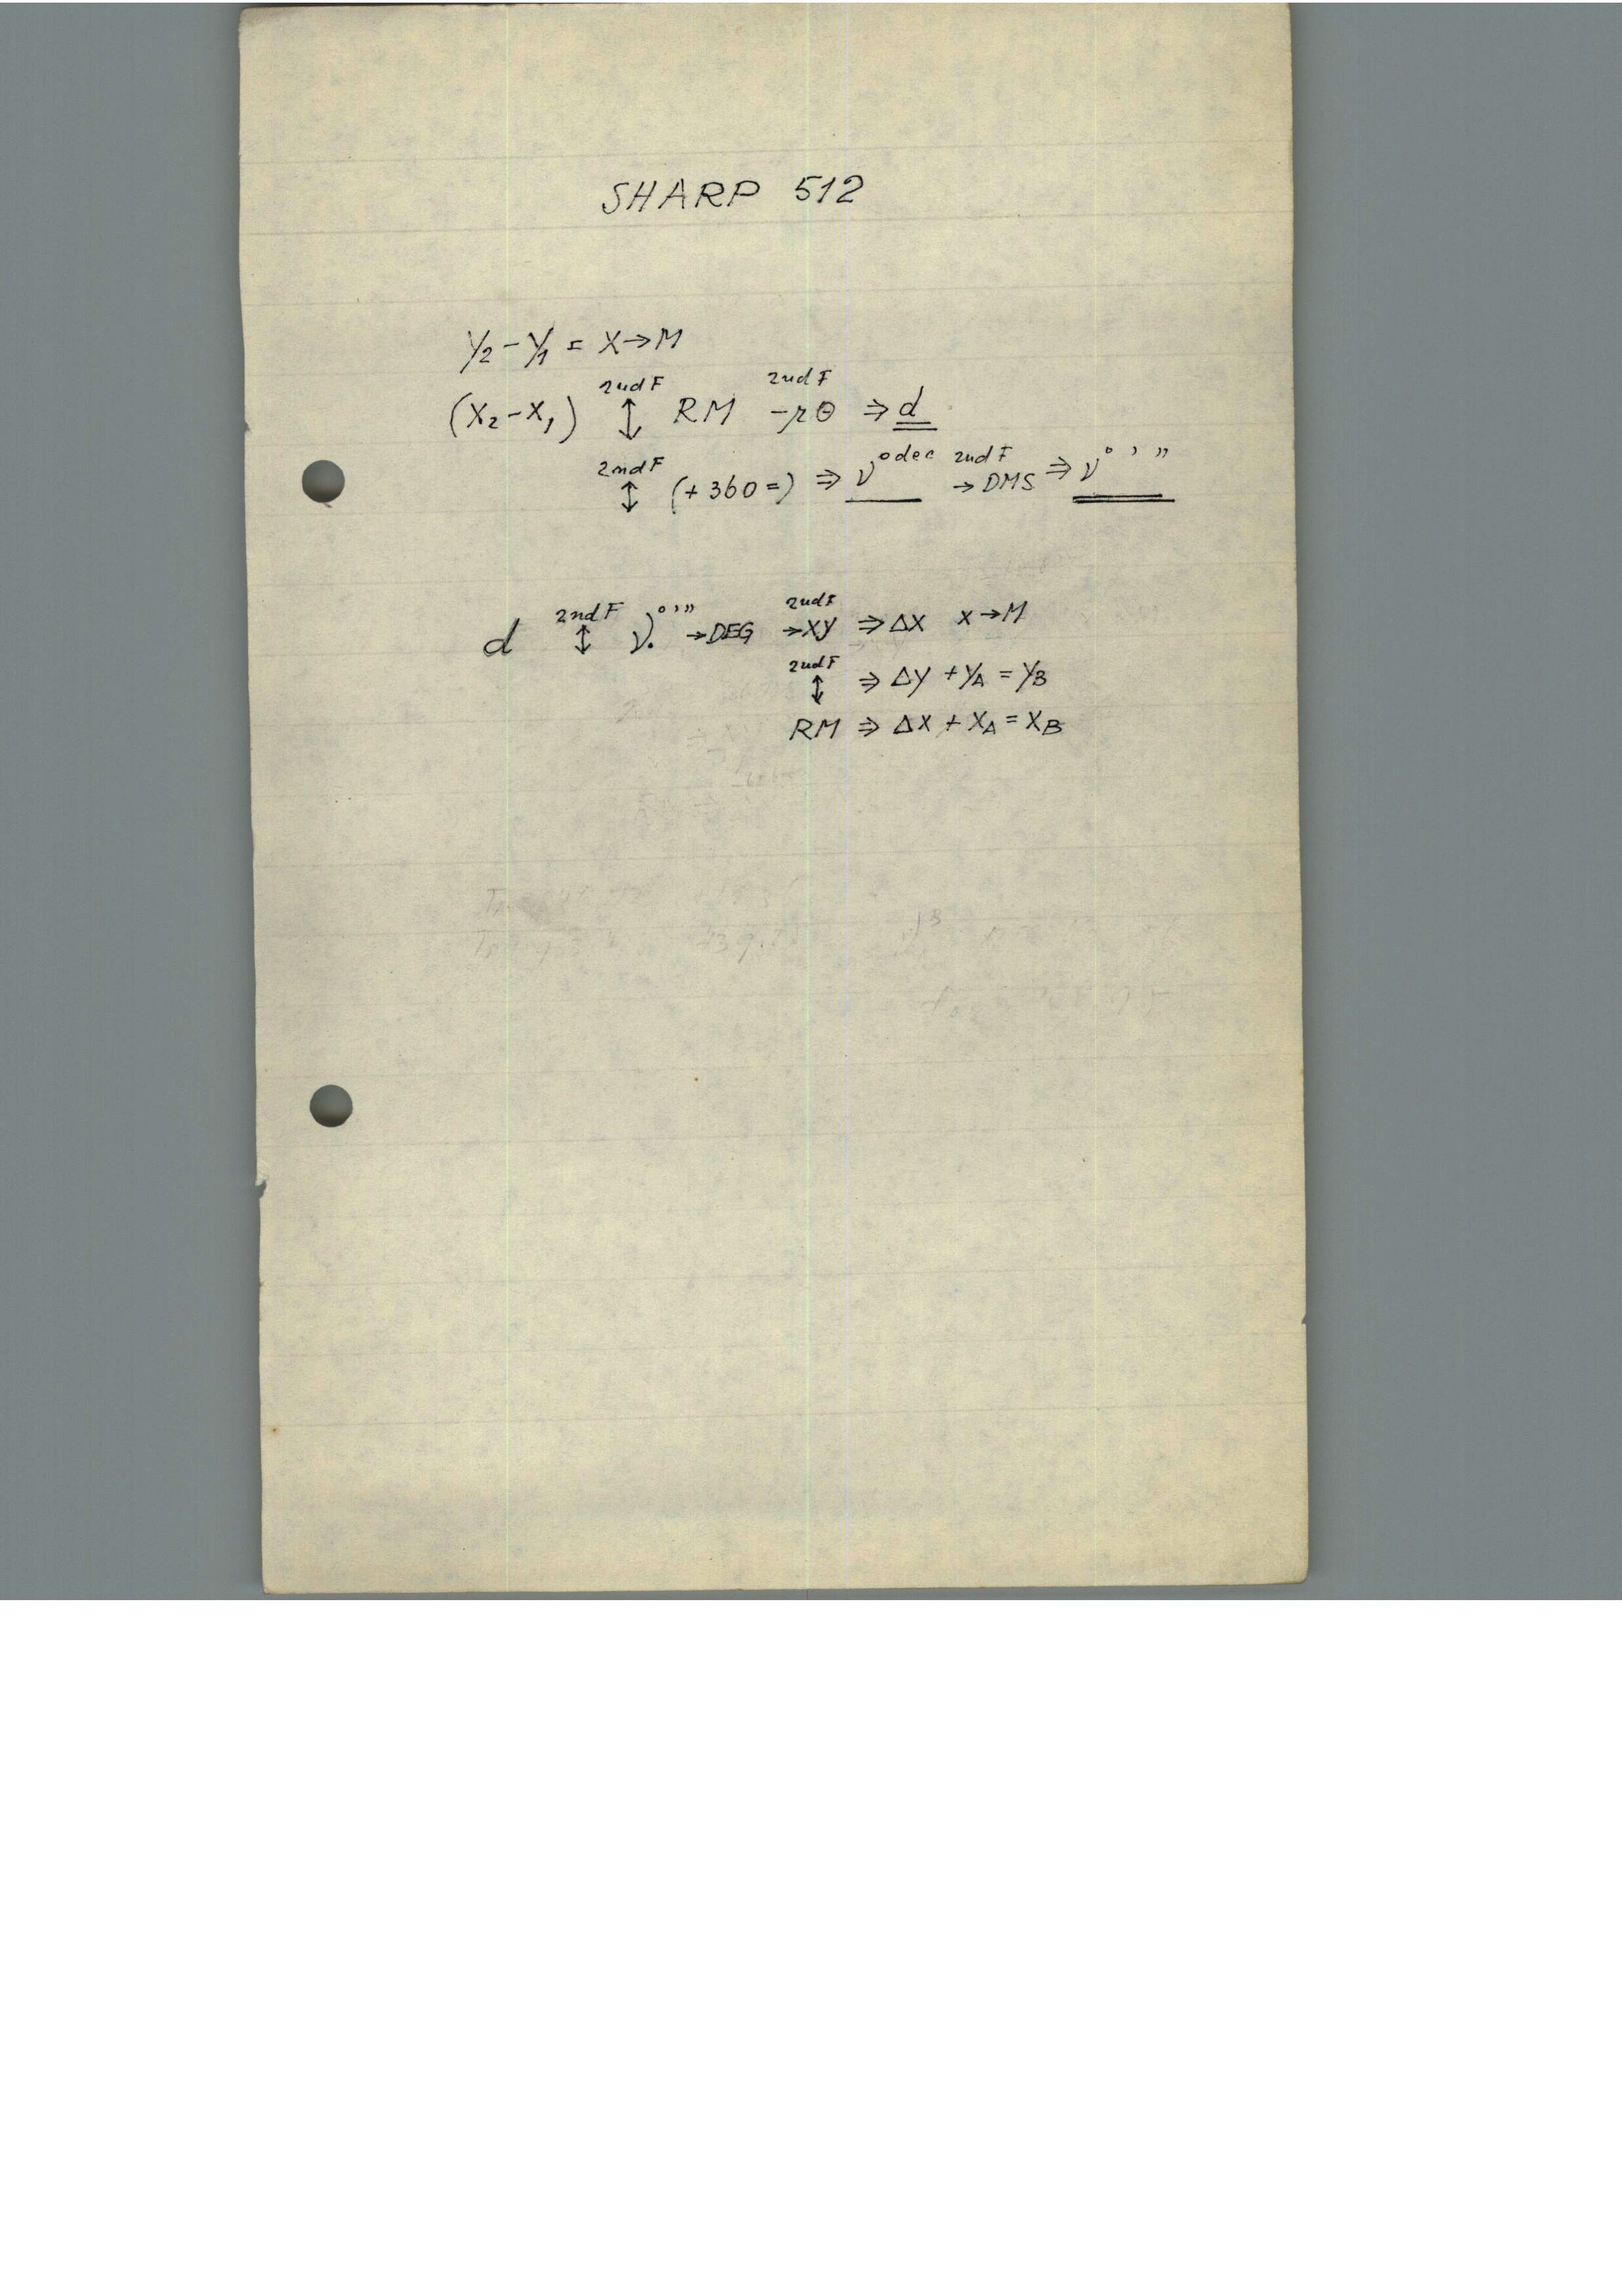 SHARP 512
Y₂ - Y₁ = X→M
2ndF 2ndF
(X₂ - X₁) ↕ RM -rθ ⇒ d
2ndF ↕ (+360=) ⇒ ν° dec 2ndF → DMS ⇒ ν° ' "
d 2ndF ↕ ν.° ' " →DEG 2ndF →XY ⇒ ΔX X→M
2ndF ↕ ⇒ Δy + yA = yB
RM ⇒ ΔX + XA = XB